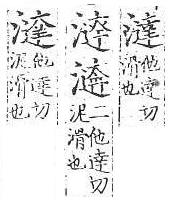 澾
他達切
滑也
二他達切
泥滑也
澾
他達切
泥滑也